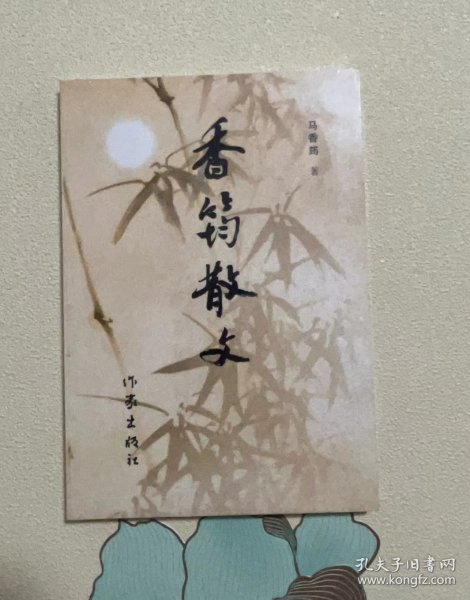 马香筠 著
香筠散文
作家出版社
孔夫子旧书网
www.kongfz.com